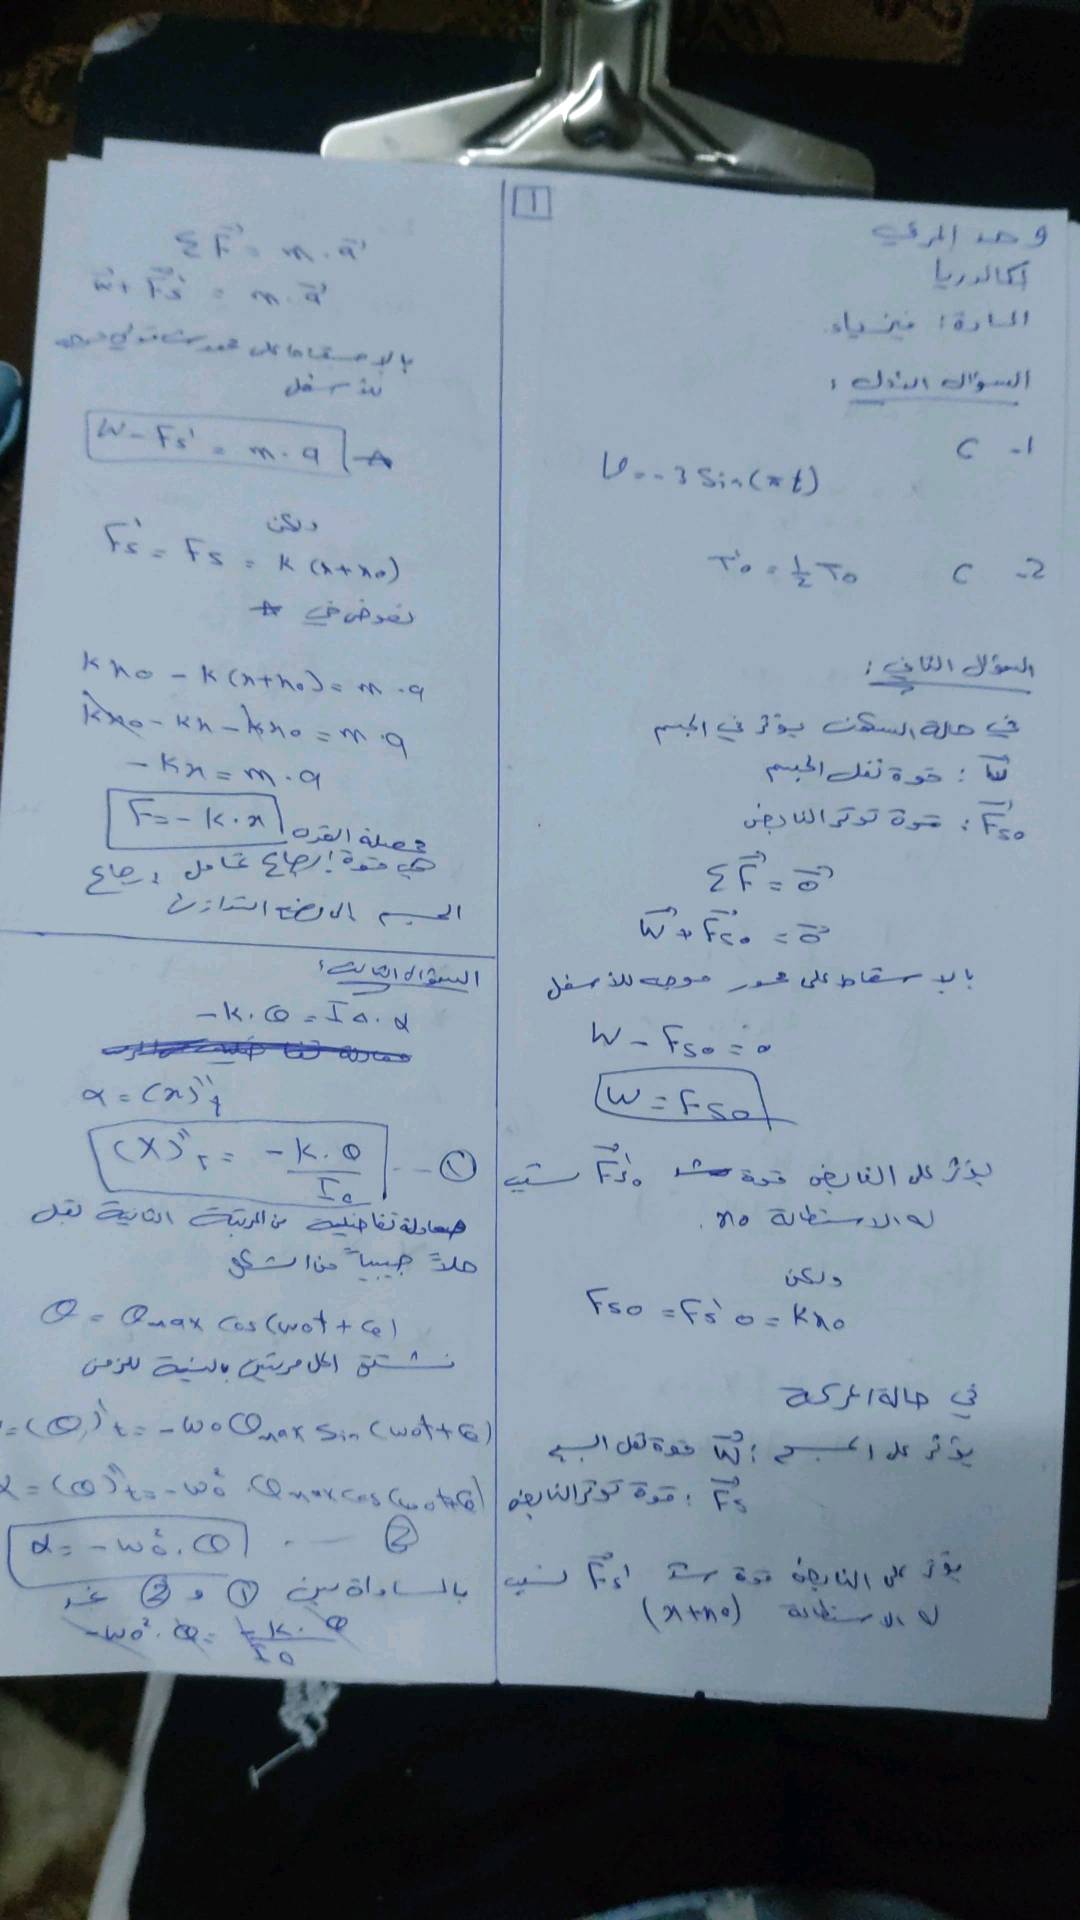 1
بكالوريا
المادة: فيزياء
السؤال الأول:
1- C
V = -3 Sin(πt)
2- C T'o = 1/2 To
السؤال الثاني:
في حالة السكون يؤثر في الجسم
W: قوة ثقل الجسم
Fso: قوة توتر النابض
ΣF = o
W + Fso = o
بالإسقاط على محور موجه للأسفل
W - Fso = o
W = Fso
يؤثر على النابض قوة F's₀ تسبب
له الاستطالة xo.
ولكن
Fso = Fs'o = kxo
في حالة الحركة
يؤثر على الجسم: W قوة ثقل الجسم
Fs: قوة توتر النابض
يؤثر على النابض قوة شد Fs' تسبب
له الاستطالة (x+xo)
ΣF = m.a
W + Fs = m.a
بالإسقاط على محور
للأسفل
W - Fs' = m.a *
ولكن
Fs' = Fs = k(x+xo)
نعوض في *
kxo - k(x+xo) = m.a
kxo - kx - kxo = m.a
-kx = m.a
F = -k.x محصلة القوى
هي قوة إرجاع تحاول إرجاع
الجسم إلى وضع التوازن
السؤال الثالث:
-k.θ = IΔ.α
α = (x)''t
(x)''t = -k.θ/IΔ ... ①
معادلة تفاضلية من المرتبة الثانية تقبل
حلاً جيبياً من الشكل
θ = θmax cos(ωot+φ)
نشتق الحل مرتين بالنسبة للزمن
= (θ)'t = -ωoθmax sin(ωot+φ)
α = (θ)''t = -ωo².θmax cos(ωot+φ)
α = -ωo².θ ... ②
بالمساواة بين ① و ② نجد
-ωo².θ = -k.θ/IΔ